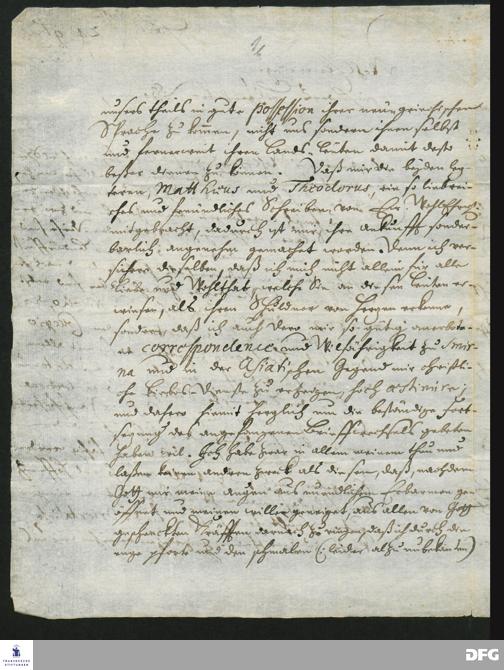 unsers theils in gute possession ihrer neuen griechischen
Sprache zu kommen, nicht uns sondern ihnen selbst
und fernerweit ihren Lands-Leuten damit desto
besser dienen zu können. Daß mir die beyden
Matthæus und Theodorus, ein so liebrei-
ches und freundliches Schreiben von
mitgebracht, dadurch ist mir ihre ankunfft sonder-
barlich angenehm gemachet worden. Denn ich ver-
sichere dieselben, daß ich mich nicht allein für alle
Liebe und Wohlthat, welche Sie an diesen Leuten er-
wiesen, als ihren Schuldner von Herzen erkenne,
sondern daß ich auch dero mir so gütig anerbote-
ne correspondence und Willfährigkeit zu Smir-
na und in der Asiatischen Gegend mir christli-
che Liebes-Dienste zu erzeigen, hoch æstimire;
und dahero hiemit herzlich um die beständige Fort-
sezung des angefangenen Brieffwechsels gebeten
haben will. Ich habe zwar in allem meinem thun und
laßen keinen andern zweck als diesen, daß, nachdem
Gott mir meine augen aus unendlichem Erbarmen ge-
öffnet und meinen willen geneiget, aus allen von Gott
geschenckten Kräfften darnach zu ringen, daß ich durch die
enge pforte und den schmalen (: leider alzu unbekanten)
FRANCKESCHE STIFTUNGEN
DFG